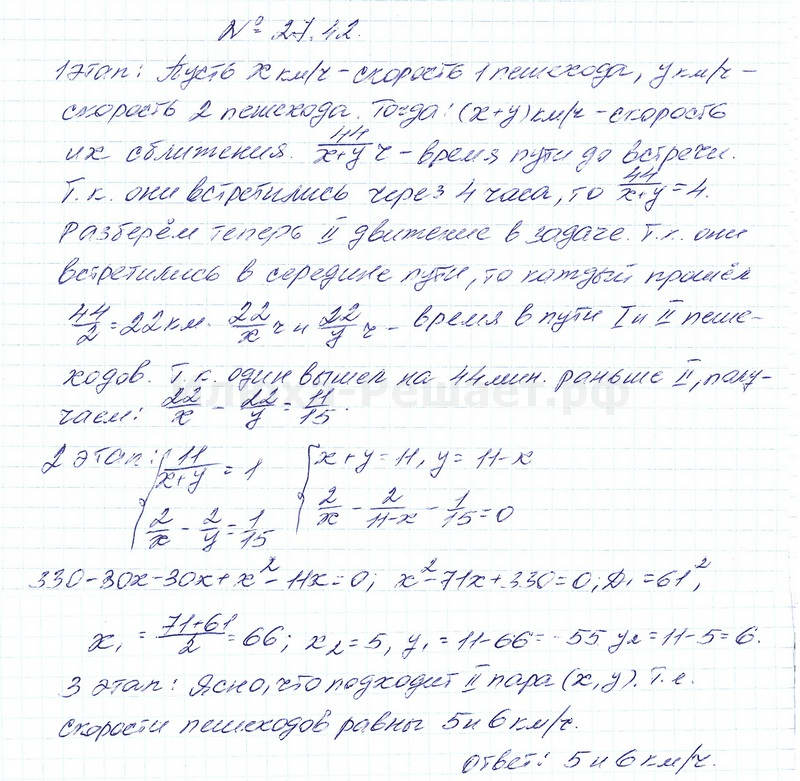 № 27.42.
1 этап: Пусть x км/ч – скорость 1 пешехода, y км/ч –
скорость 2 пешехода. Тогда: (x+y) км/ч – скорость
их сближения. 44/(x+y) ч – время пути до встречи.
Т.к. они встретились через 4 часа, то 44/(x+y) = 4.
Разберём теперь II движение в задаче. Т.к. они
встретились в середине пути, то каждый прошёл
44/2 = 22 км. 22/x ч и 22/y ч – время в пути I и II пеше-
ходов. Т.к. один вышел на 44 мин. раньше II, полу-
чаем: 22/x - 22/y = 11/15.
2 этап: { 11/(x+y) = 1 { x+y=11, y=11-x
2/x - 2/y = 1/15 2/x - 2/(11-x) - 1/15 = 0
330-30x-30x+x²-11x=0; x²-71x+330=0; D₁=61²,
x₁ = (71+61)/2 = 66; x₂=5, y₁=11-66=-55 y₂=11-5=6.
3 этап: Ясно, что подходит II пара (x, y). Т.е.
скорости пешеходов равны 5 и 6 км/ч.
Ответ: 5 и 6 км/ч.